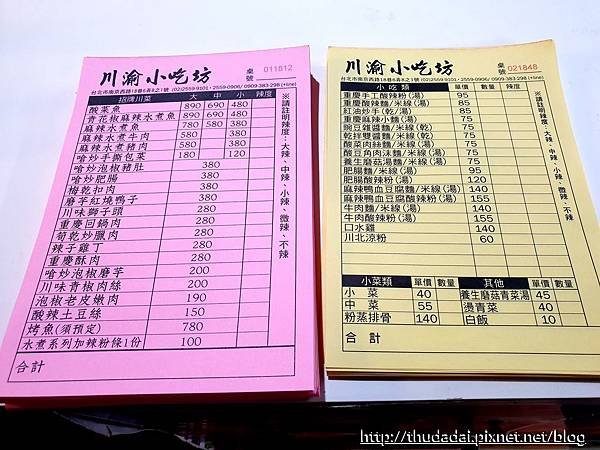 川渝小吃坊
桌號 011812
台北市南京西路18巷6弄8之1號 (02)2559-9101・2559-0906/ 0909-383-298 (+line)
招牌川菜 大 中 小 辣度
酸菜魚 890 690 480
青花椒麻辣水煮魚 890 690 480
麻辣水煮魚 780 580 380
麻辣水煮牛肉 580 380
麻辣水煮豬肉 580 380
嗆炒手撕包菜 180 120
嗆炒泡椒豬肚 380
嗆炒肥腸 380
梅乾扣肉 380
磨芋紅燒鴨子 380
川味獅子頭 280
重慶回鍋肉 280
筍乾炒臘肉 280
辣子雞丁 280
重慶酥肉 280
嗆炒泡椒磨芋 200
川味青椒肉絲 200
泡椒老皮嫩肉 190
酸辣土豆絲 150
烤魚(須預定) 780
水煮系列加辣粉條1份 100
合計
※請註明辣度：大辣、中辣、小辣、微辣、不辣
川渝小吃坊
桌號 021848
台北市南京西路18巷6弄8之1號 (02)2559-9101・2559-0906/ 0909-383-298 (+line)
小吃類 單價 數量 辣度
重慶手工酸辣粉(湯) 95
重慶酸辣麵/米線(湯) 85
紅油炒手(乾/湯) 85
重慶麻辣小麵(湯) 75
豌豆雜醬麵/米線(乾) 75
乾拌雙醬麵/米線(乾) 75
酸菜肉絲麵/米線(湯) 75
酸豆角肉沫麵/米線(湯) 75
養生磨菇湯麵/米線(湯) 75
肥腸麵/米線(湯) 95
肥腸酸辣粉(湯) 120
麻辣鴨血豆腐麵/米線(湯) 140
麻辣鴨血豆腐酸辣粉(湯) 155
牛肉麵/米線(湯) 140
牛肉酸辣粉(湯) 155
口水雞 140
川北涼粉 60
※請註明辣度：大辣、中辣、小辣、微辣、不辣
小菜類 單價 數量 其他 單價 數量
小菜 40 養生磨菇青菜湯 45
中菜 55 燙青菜 40
粉蒸排骨 140 白飯 10
合計
http://thudadai.pixnet.net/blog